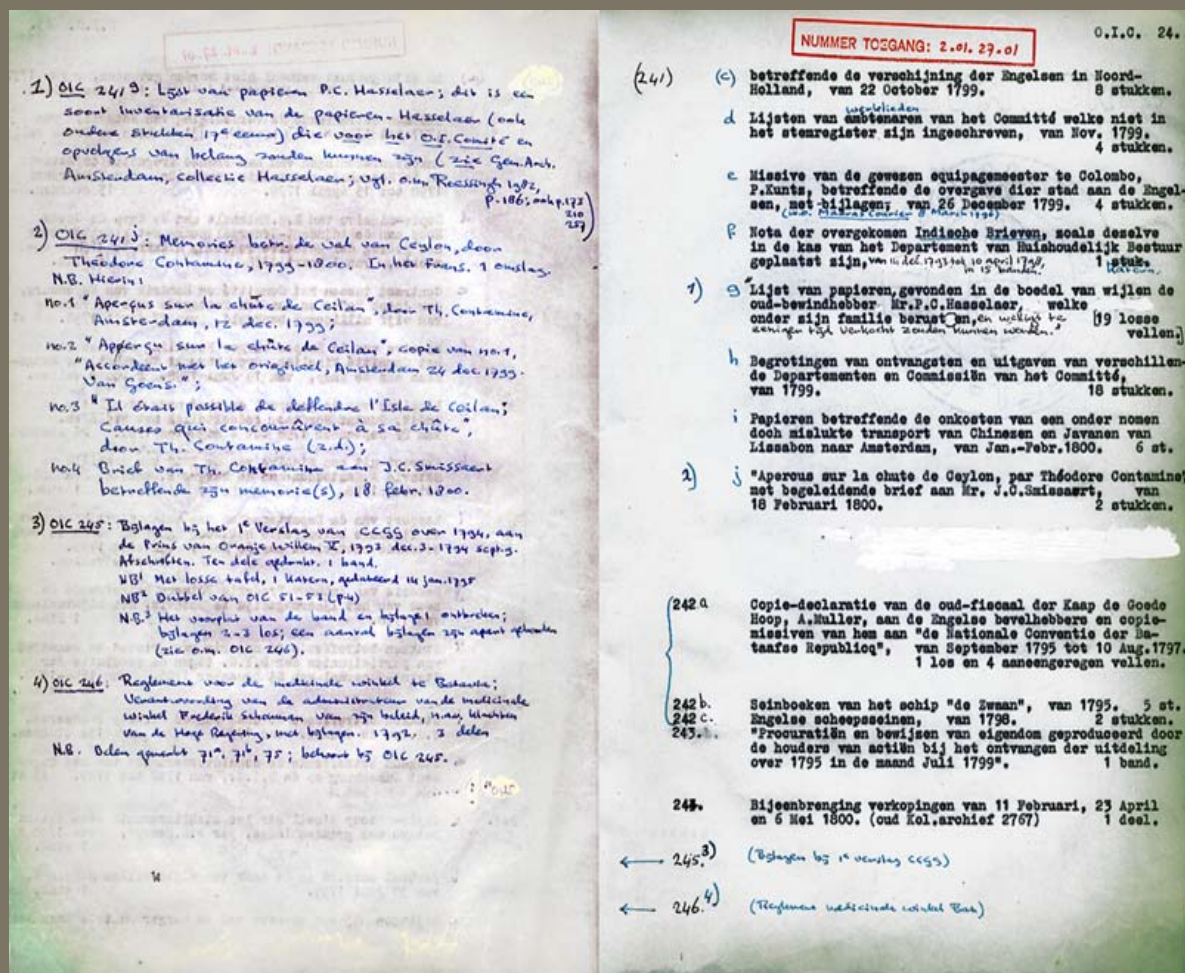 1) OIC 241g: Lijst van papieren P.C. Hasselaer; dit is een
soort inventarisatie van de papieren-Hasselaer (ook
oudere stukken 17e eeuw) die voor het O.I. Comité en
opvolgers van belang zouden kunnen zijn (zie Gem. Arch.
Amsterdam, collectie Hasselaer; vgl. o.m. Roessingh 1982,
p. 186; ook p. 173
210
257)
2) OIC 241j: Memories betr. de val van Ceylon, door
Théodore Contamine, 1799-1800. In het Frans. 1 omslag.
N.B. Hierin:
no.1 "Aperçus sur la chûte de Ceilan", door Th. Contamine,
Amsterdam, 12 dec. 1799;
no.2 "Apperçu sur la chûte de Ceilan", copie van no.1,
"Accordeert met het origineel, Amsterdam 24 dec. 1799.
Van Goens.";
no.3 "Il étais possible de deffendre l'Isle de Ceilan;
Causes qui concoururent à sa chûte",
door Th. Contamine (z.d.);
no.4 Brief van Th. Contamine aan J.C. Smissaert
betreffende zijn memorie(s), 18 febr. 1800.
3) OIC 245: Bijlagen bij het 1e Verslag van CCGG over 1794, aan
de Prins van Oranje Willem V, 1793 dec. 3 - 1794 sept. 9.
Afschriften. Ten dele gedrukt. 1 band.
NB1 Met losse tafel, 1 katern, gedateerd 14 jan. 1795
NB2 Dubbel van OIC 51-53 (p4)
N.B.3 Het voorplat van de band en bijlage 1 ontbreken;
bijlagen 2-3 los; een aantal bijlagen zijn apart gebonden
(zie o.m. OIC 246).
4) OIC 246: Reglement voor de medicinale winkel te Batavia;
Verantwoording van de administrateur van de medicinale
winkel Frederik Schouman van zijn beleid, n.a.v. klachten
van de Hoge Regering, met bijlagen. 1792. 3 delen
N.B. Delen gemerkt 71a, 71b, 75; behoort bij OIC 245.
NUMMER TOEGANG: 2.01.27.01
O.I.C. 24.
(241) (c) betreffende de verschijning der Engelsen in Noord-
Holland, van 22 October 1799. 8 stukken.
werklieden
d Lijsten van ambtenaren van het Committé welke niet in
het stemregister zijn ingeschreven, van Nov. 1799.
4 stukken.
e Missive van de gewezen equipagemeester te Colombo,
P.Kuntz, betreffende de overgave dier stad aan de Engel-
sen, met bijlagen; van 26 December 1799. 4 stukken.
(w.o. Madras Courier 8 March 1796)
f Nota der overgekomen Indische Brieven, zoals dezelve
in de kas van het Departement van Huishoudelijk Bestuur
geplaatst zijn, van 14 dec. 1793 tot 10 april 1798, 1 stuk.
in 15 banden. Katern.
1) g "Lijst van papieren, gevonden in de boedel van wijlen de
oud-bewindhebber Mr.P.C.Hasselaer, welke
onder zijn familie berusten, en welligt te [19 losse
eenigen tijd verkocht zouden kunnen worden." vellen.]
h Begrotingen van ontvangsten en uitgaven van verschillen-
de Departementen en Commissiën van het Committé,
van 1799. 18 stukken.
i Papieren betreffende de onkosten van een onder nomen
doch mislukte transport van Chinezen en Javanen van
Lissabon naar Amsterdam, van Jan.-Febr.1800. 6 st.
2) j "Apercus sur la chute de Ceylon, par Théodore Contamine"
met begeleidende brief aan Mr. J.C.Smissaert, van
18 Februari 1800. 2 stukken.
242.a Copie-declaratie van de oud-fiscaal der Kaap de Goede
Hoop, A.Muller, aan de Engelse bevelhebbers en copie-
missiven van hem aan "de Nationale Conventie der Ba-
taafse Republicq", van September 1795 tot 10 Aug.1797.
1 los en 4 aaneengeregen vellen.
242 b. Seinboeken van het schip "de Zwaan", van 1795. 5 st.
242 c. Engelse scheepsseinen, van 1798. 2 stukken.
243. "Procuratiën en bewijsen van eigendom geproduceerd door
de houders van actiën bij het ontvangen der uitdeling
over 1795 in de maand Juli 1799". 1 band.
244. Bijeenbrenging verkopingen van 11 Februari, 23 April
en 6 Mei 1800. (oud Kol.archief 2767) 1 deel.
← 245.3) (Bijlagen bij 1e verslag CCGG)
← 246.4) (Reglement medicinale winkel Bat)